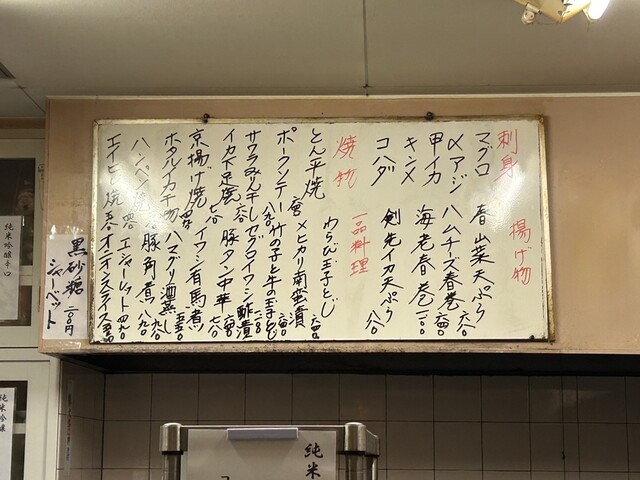 刺身
マグロ
〆アジ
甲イカ
キンメ
コハダ
揚げ物
春山菜天ぷら 六八〇
ハムチーズ春巻 六四〇
海老春巻
剣先イカ天ぷら
焼物
とん平焼
ポークソテー 八九〇
サワラみりん干し
イカ下足焼
京揚げ焼
ホタルイカ干物
ハンペン
エイヒレ焼
一品料理
わらび玉子とじ 六四〇
メヒカリ南蛮漬 六四〇
竹の子と牛の玉子とじ
セグロイワシ酢漬
豚タン中華
イワシ有馬煮
ハマグリ酒蒸し
豚角煮 八九〇
エシャーレット 四九〇
オニオンスライス
黒砂糖
シャーベット
純米吟醸辛口
純米吟醸
純米